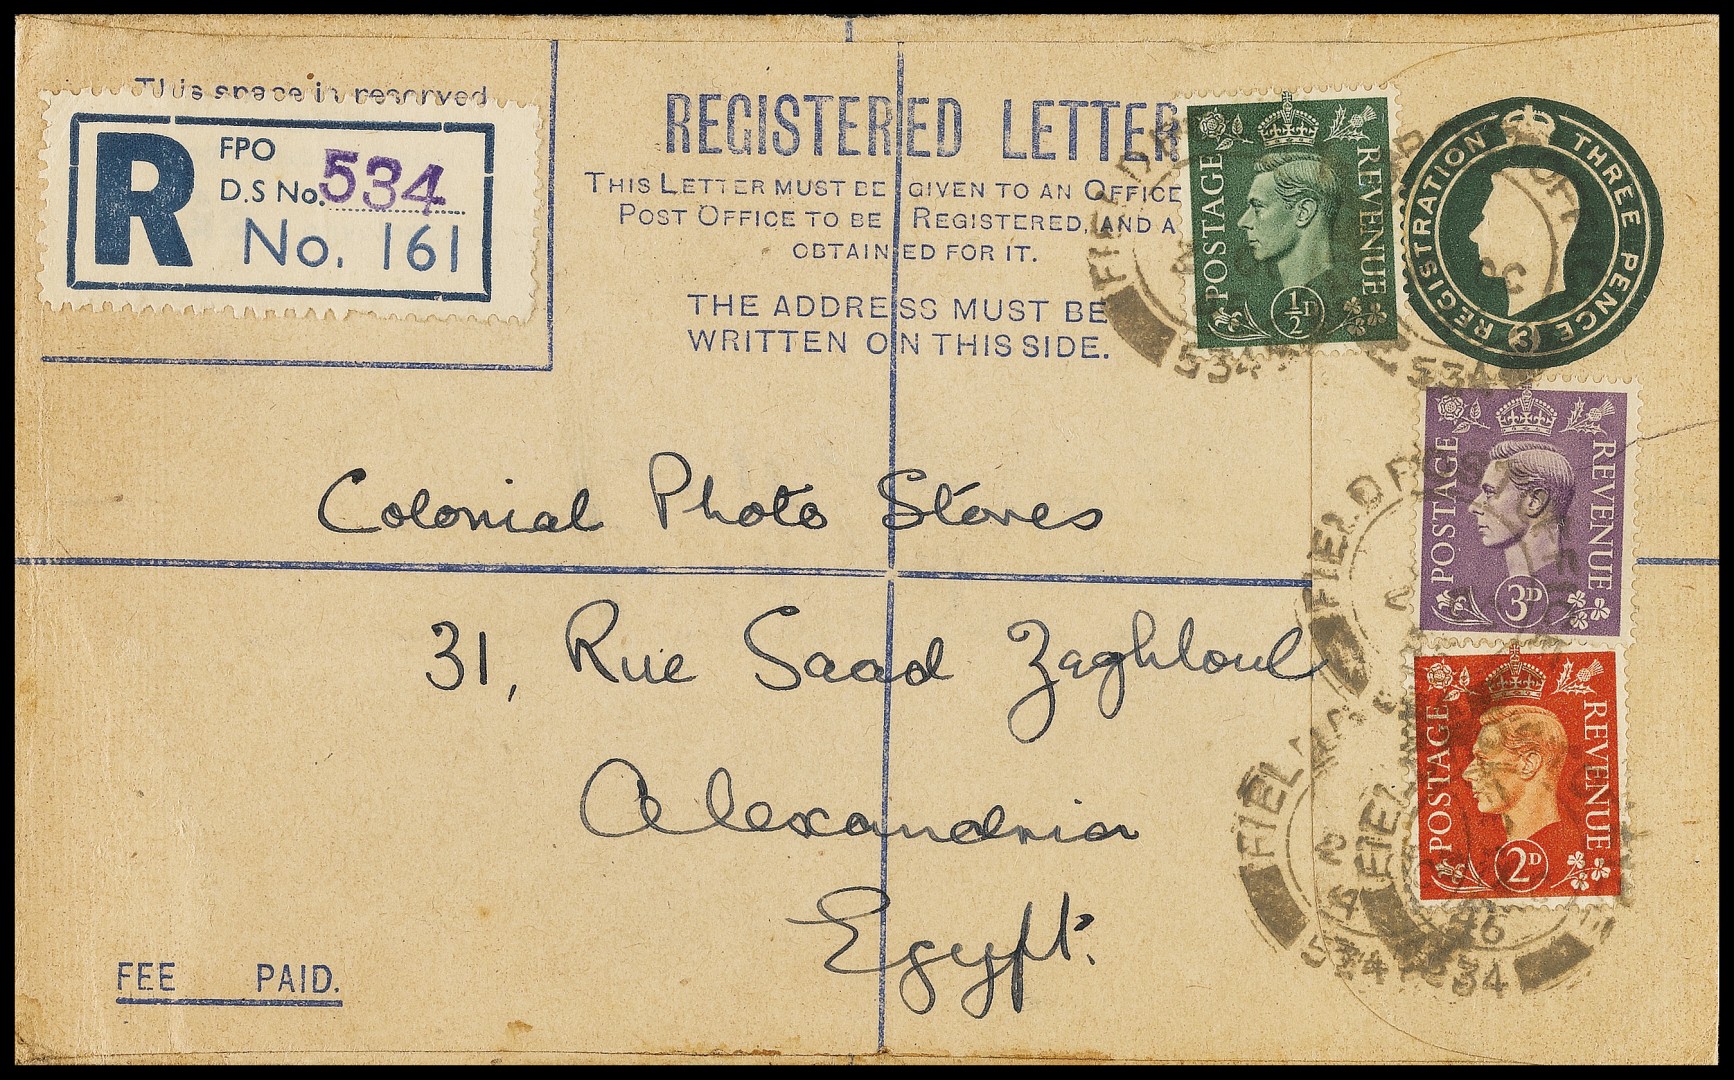 This space is reserved
R
FPO
D.S No. 534
No. 161
REGISTERED LETTER
THIS LETTER MUST BE GIVEN TO AN OFFICE
POST OFFICE TO BE REGISTERED, AND A
OBTAINED FOR IT.
THE ADDRESS MUST BE
WRITTEN ON THIS SIDE.
POSTAGE REVENUE
½D
REGISTRATION THREE PENCE
3
FIELD POST OFFICE
534
534
POSTAGE REVENUE
3D
FIELD POST OFFICE
POSTAGE REVENUE
2D
FIEL
FIEL
46
534
534
Colonial Photo Stores
31, Rue Saad Zaghloul
Alexandria
Egypt.
FEE PAID.